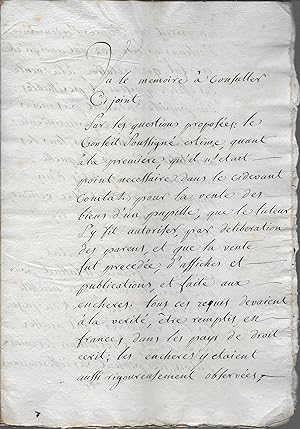 Vu le memoire à Consulter
Ci joint
Sur les questions proposées, le
Conseil Soussigné estime, quant
à la premiere, qu'il n'etait
point necessaire dans le cidevant
Comtat, pour la vente des
biens d'un pupille, que le tuteur
s'y fit autoriser, par deliberation
des parens, et que la vente
fut precedée, d'affiches et
publications, et faite aux
encheres: tous ces requis devaient
à la verité, être remplis en
france, dans les pays de droit
ecrit; les encheres y etaient
aussi rigoureusement observées,